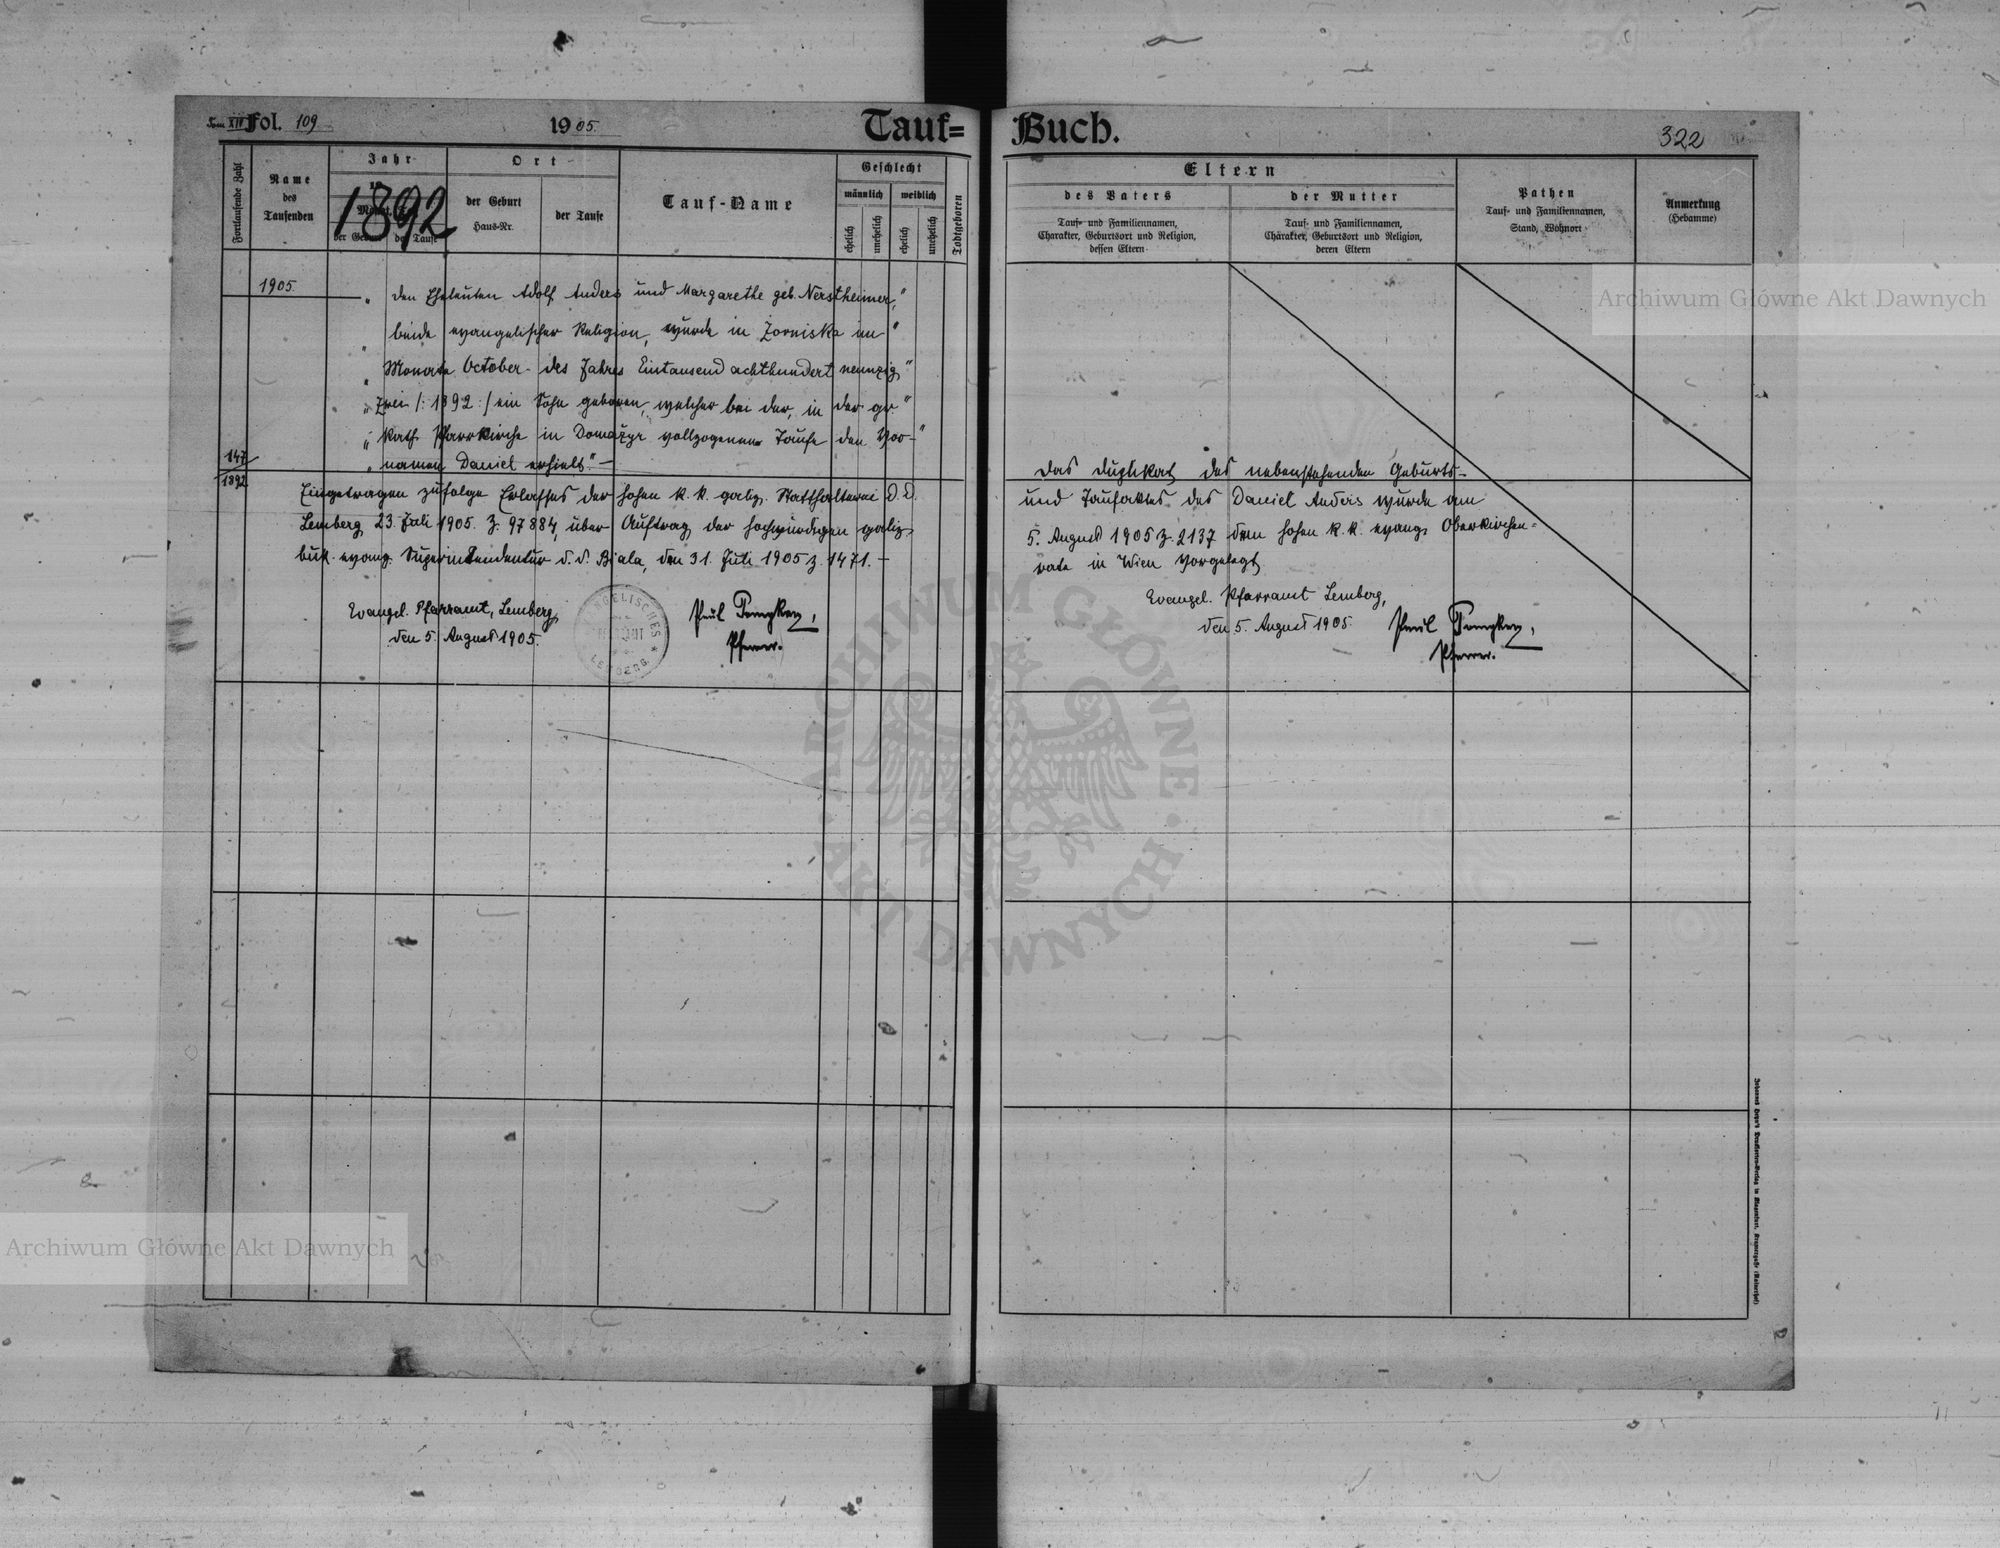 Tom XIV Fol. 109
1905.
Tauf=
Buch.
322
Fortlaufende Zahl
Name
des
Taufenden
Jahr
1892
Monat, Tag
der Geburt
der Taufe
Ort
der Geburt
Haus-Nr.
der Taufe
Tauf-Name
Geschlecht
männlich
weiblich
ehelich
unehelich
ehelich
unehelich
Todtgeboren
Eltern
des Vaters
Tauf- und Familiennamen,
Charakter, Geburtsort und Religion,
dessen Eltern
der Mutter
Tauf- und Familiennamen,
Charakter, Geburtsort und Religion,
deren Eltern
Pathen
Tauf- und Familiennamen,
Stand, Wohnort
Anmerkung
(Hebamme)
1905.
„ den Eheleuten Adolf Anders und Margarethe geb. Nerstheimer, "
„ beide evangelischer Religion, wurde in Zorniska im "
„ Monate October des Jahres Eintausend achthundert neunzig "
„ Zwei /: 1892 :/ ein Sohn geboren, welcher bei der, in der gr "
„ kath. Pfarrkirche in Domażyr vollzogenen Taufe den Vor- "
„ namen Daniel erhielt." —
147
1892
Eingetragen zufolge Erlasses der hohen k. k. galiz. Statthalterei d. d.
Lemberg, 23. Juli 1905. Z. 97884, über Auftrag der hochwürdigen galiz.
buk. evang. Superintendentur d. d. Biala, den 31. Juli 1905 Z. 1471. —
Evangel. Pfarramt, Lemberg,
den 5. August 1905.
EVANGELISCHES
PFARRAMT
LEMBERG
Paul
Pfarrer.
Das Duplikat des nebenstehenden Geburts-
und Taufaktes des Daniel Anders wurde am
5. August 1905 Z. 2137 dem hohen k. k. evang. Oberkirchen=
rate in Wien vorgelegt
Evangel. Pfarramt Lemberg,
den 5. August 1905.
Paul
Pfarrer.
Archiwum Główne Akt Dawnych
ARCHIWUM GŁÓWNE · AKT DAWNYCH ·
Archiwum Główne Akt Dawnych